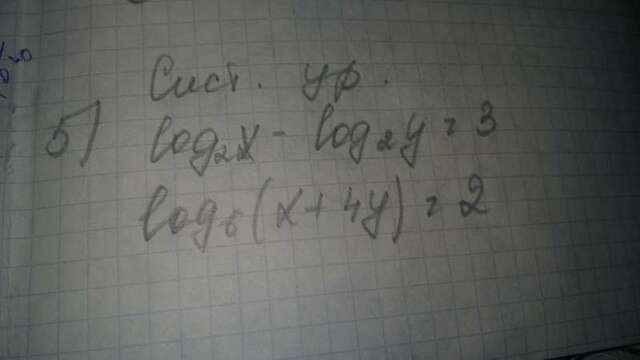 5) Сист. ур.
log₂x - log₂y = 3
log₆(x + 4y) = 2